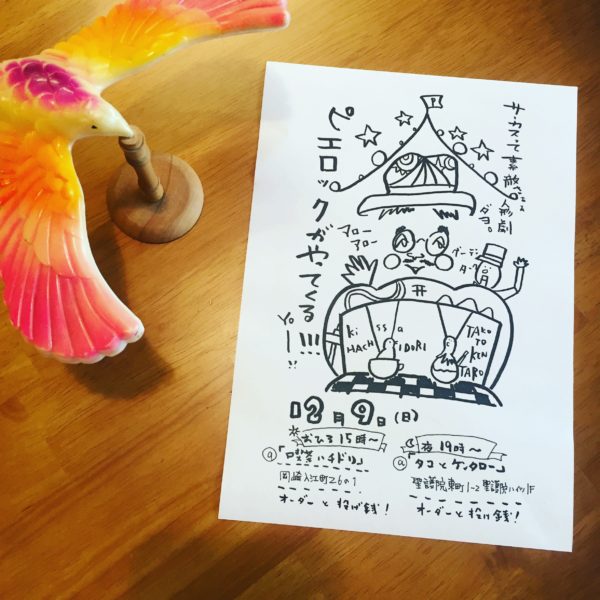 サーカスって素敵な
人形劇
ダヨ。
ピエロックがやってくる
Yo
ー!!!!
マロー
アロー
グーテン
ターク
Kissa
HACHIDORI
TAKO
TO
KEN
TARO
12月9日(日)
おひる15時〜
@「喫茶ハチドリ」
岡崎入江町26の1
オーダーと投げ銭!
夜19時〜
@「タコとケンタロー」
聖護院東町1-2聖護院ハイツ1F
オーダーと投げ銭!